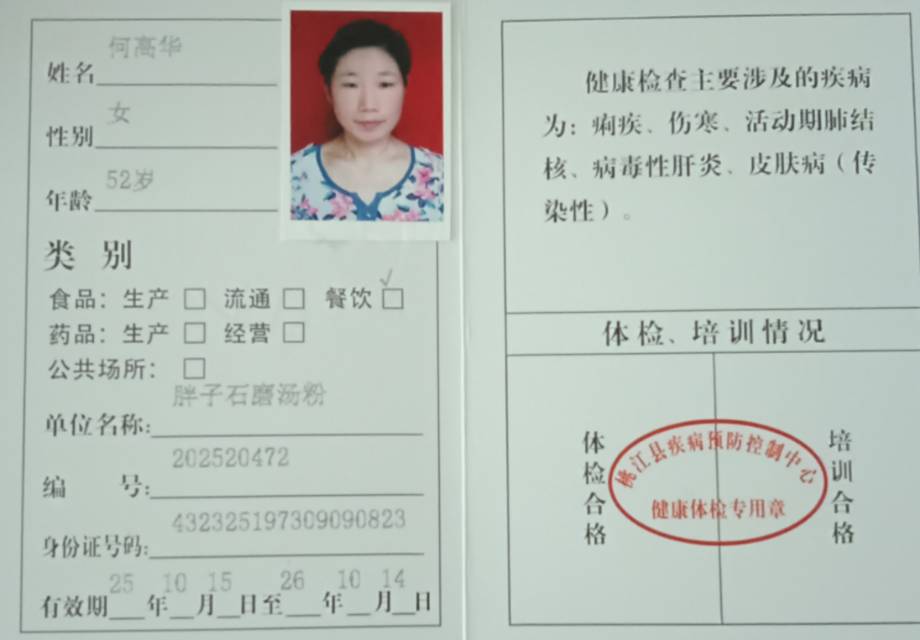 姓名 何高华
性别 女
年龄 52岁
类 别
食品：生产 □ 流通 □ 餐饮 □√
药品：生产 □ 经营 □
公共场所： □
单位名称： 胖子石磨汤粉
编 号： 202520472
身份证号码： 432325197309090823
有效期 25 年 10 月 15 日至 26 年 10 月 14 日
健康检查主要涉及的疾病
为：痢疾、伤寒、活动期肺结
核、病毒性肝炎、皮肤病（传
染性）。
体检、培训情况
体检合格
桃江县疾病预防控制中心
健康体检专用章
培训合格